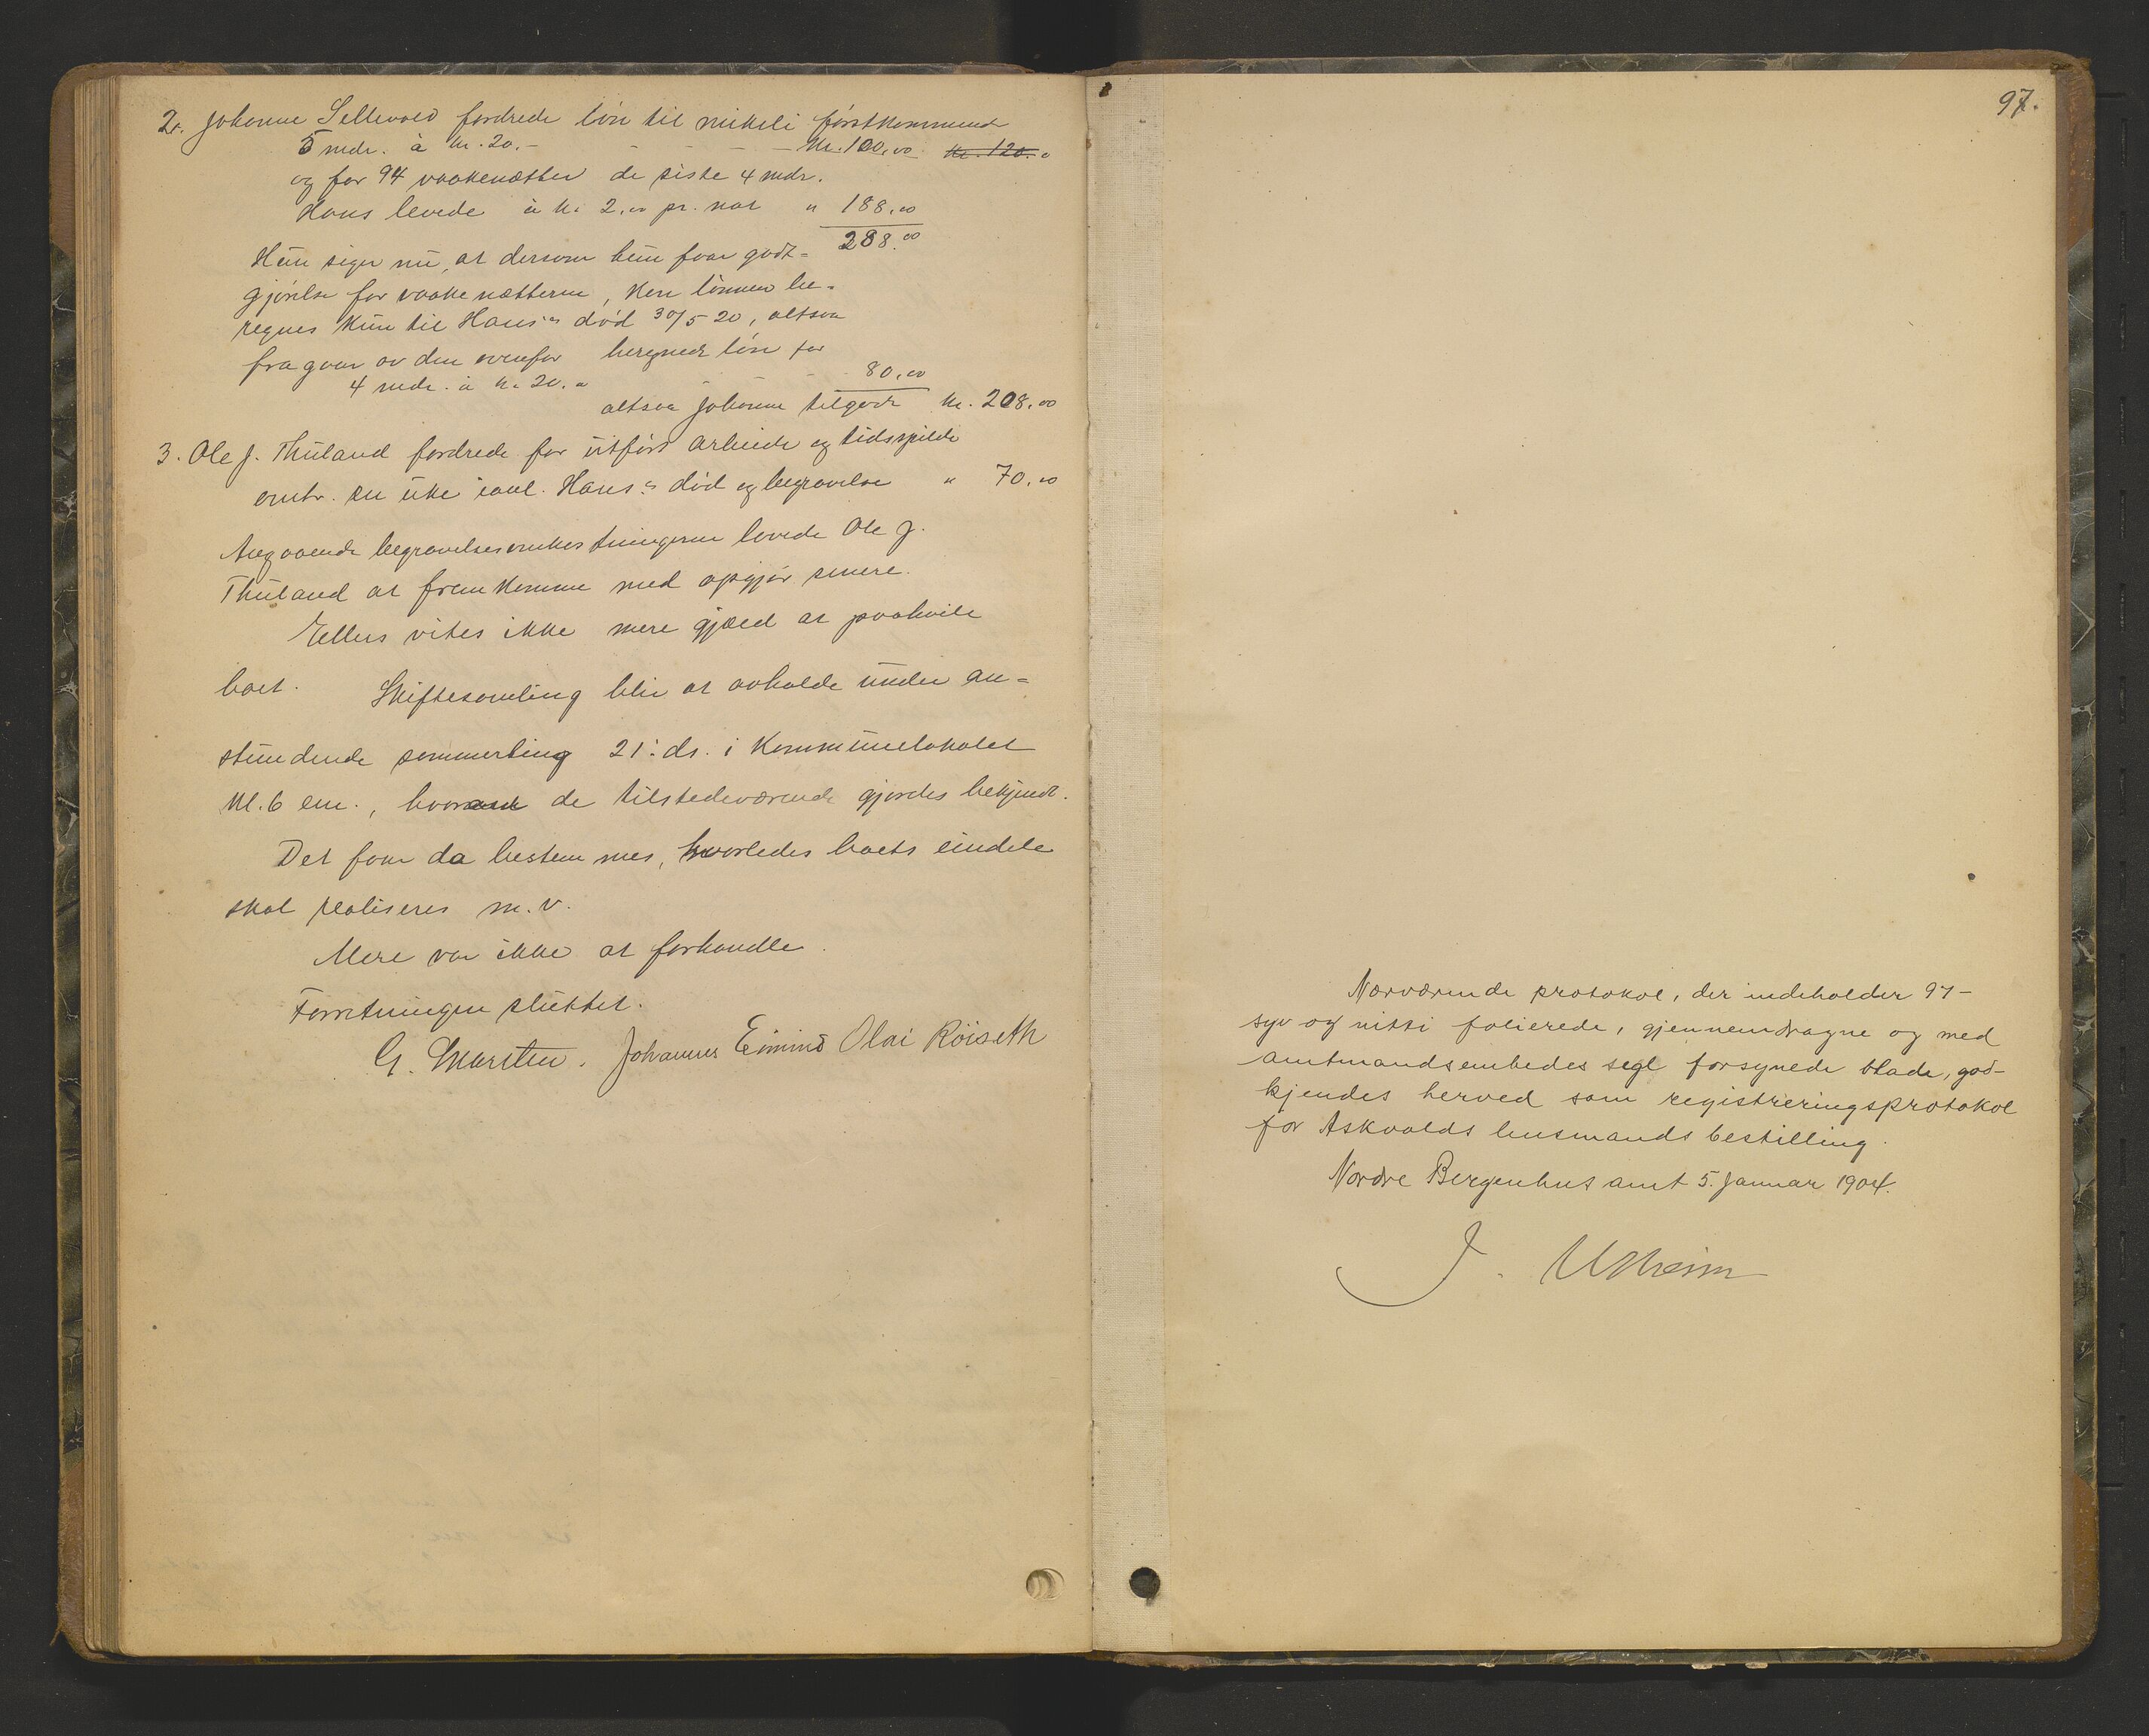 2. Johanne Sellevold fordrede løn til mikeli førstkommende
5 mdr. à kr. 20.- - - - - kr. 100,00 kr. 120.0
og for 94 vaakenætter de siste 4 mdr.
Hans levede à kr 2,00 pr. nat " 188,00
288.00
Hun siger nu, at dersom hun faar godt-
gjörelse for vaakenætterne, kan lönnen be-
regnes kun til Hans's död 30/5 20, altsaa
fragaar av den ovenfor beregnede lön for
4 mdr. à kr 20.00 - - - 80,00
altsaa Johanne tilgode kr. 208,00
3. Ole J. Thuland fordrede for utfört arbeide og tidsspilde
omtr. en uke ianl. Hans's död og begravelse " 70,00
Angaaende begravelsesomkostningerne lovede Ole J.
Thuland at fremkomme med opgjör senere.
Ellers vites ikke mere gjæld at paahvile
boet. Skiftesamling blir at avholde under an-
stundende sommerting 21. ds. i Kommunelokalet
kl. 6 em., de tilstedeværende gjordes bekjendt.
Det faar da bestemmes, hvorledes boets eiendele
skal realiseres m.v.
Mere var ikke at forhandle.
Forretningen sluttet.
G. Johannes Eimind Olai Röiseth
97.
Nærværende protokol, der indeholder 97-
syv og nitti folierede, gjennemdragne og med
amtmandsembedes segl forsynede blade, god-
kjendes herved som registreringsprotokol
for Askvolds lensmands bestilling.
Nordre Bergenhus amt 5. Januar 1904.
J. Utheim